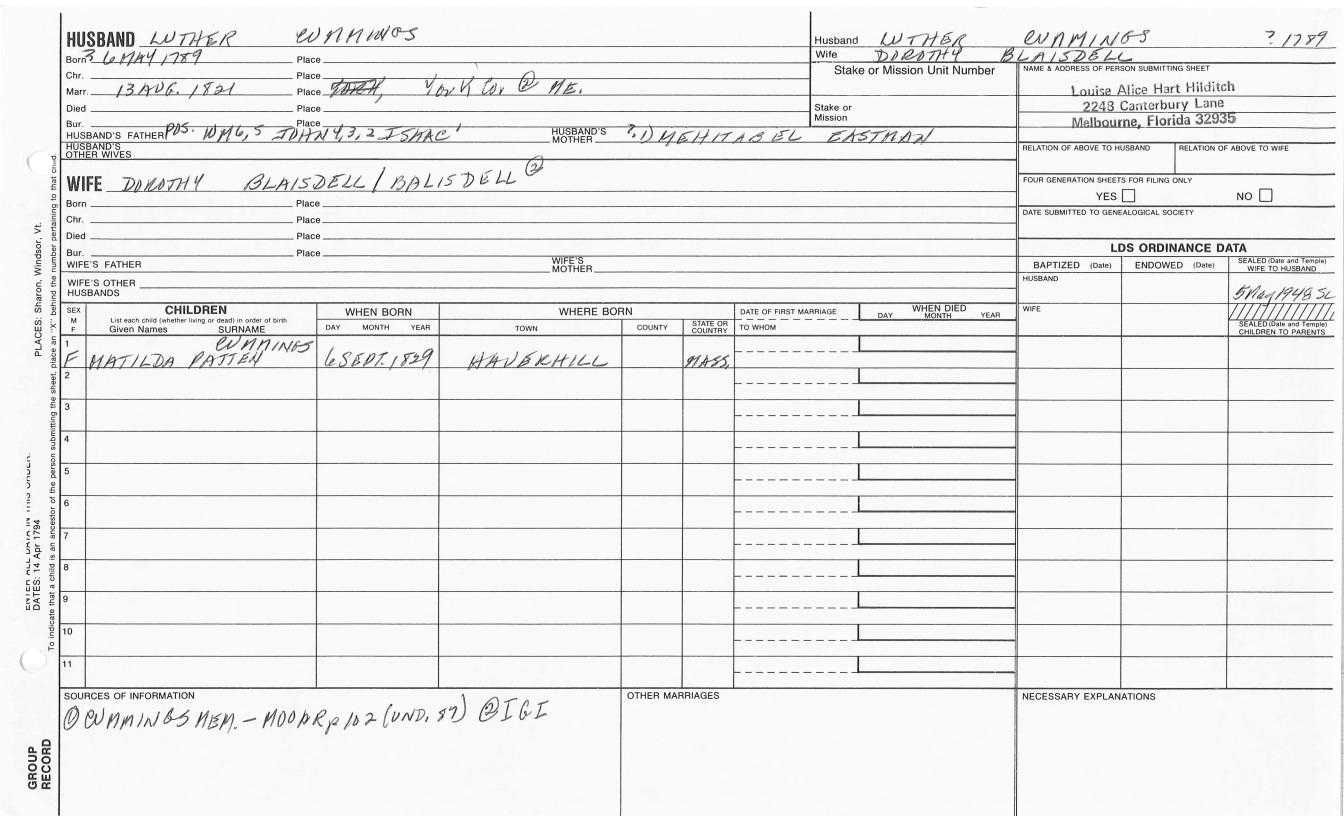 HUSBAND LUTHER CUMMINGS
Born ? 6 MAY 1789 Place
Chr. Place
Marr. 13 AUG. 1821 Place YORK Co. ② ME.
Died Place
Bur. Place
HUSBAND'S FATHER POS. WM6,5 JOHN4,3,2 ISAAC1 HUSBAND'S MOTHER ?① MEHITABEL EASTMAN
HUSBAND'S OTHER WIVES
Husband LUTHER CUMMINGS ? 1789
Wife DOROTHY BLAISDELL
Stake or Mission Unit Number
Stake or Mission
NAME & ADDRESS OF PERSON SUBMITTING SHEET
Louise Alice Hart Hilditch
2243 Canterbury Lane
Melbourne, Florida 32935
RELATION OF ABOVE TO HUSBAND RELATION OF ABOVE TO WIFE
FOUR GENERATION SHEETS FOR FILING ONLY
YES NO
DATE SUBMITTED TO GENEALOGICAL SOCIETY
WIFE DOROTHY BLAISDELL / BALISDELL ②
Born Place
Chr. Place
Died Place
Bur. Place
WIFE'S FATHER WIFE'S MOTHER
WIFE'S OTHER HUSBANDS
LDS ORDINANCE DATA
BAPTIZED (Date) ENDOWED (Date) SEALED (Date and Temple) WIFE TO HUSBAND
HUSBAND 5 May 1948 SL
WIFE
SEALED (Date and Temple) CHILDREN TO PARENTS
SEX M F
CHILDREN
List each child (whether living or dead) in order of birth
Given Names SURNAME
WHEN BORN
DAY MONTH YEAR
WHERE BORN
TOWN COUNTY STATE OR COUNTRY
DATE OF FIRST MARRIAGE
TO WHOM
WHEN DIED
DAY MONTH YEAR
1 CUMMINGS
F MATILDA PATTEN 6 SEPT. 1829 HAVERHILL MASS.
2
3
4
5
6
7
8
9
10
11
SOURCES OF INFORMATION
① CUMMINGS MEM. - MOOAR p 102 (UND. 87) ② IGI
OTHER MARRIAGES
NECESSARY EXPLANATIONS
PLACES: Sharon, Windsor, Vt.
ENTER ALL DATA IN THIS ORDER:
DATES: 14 Apr 1794
To indicate that a child is an ancestor of the person submitting the sheet, place an "X" behind the number pertaining to that child.
GROUP RECORD